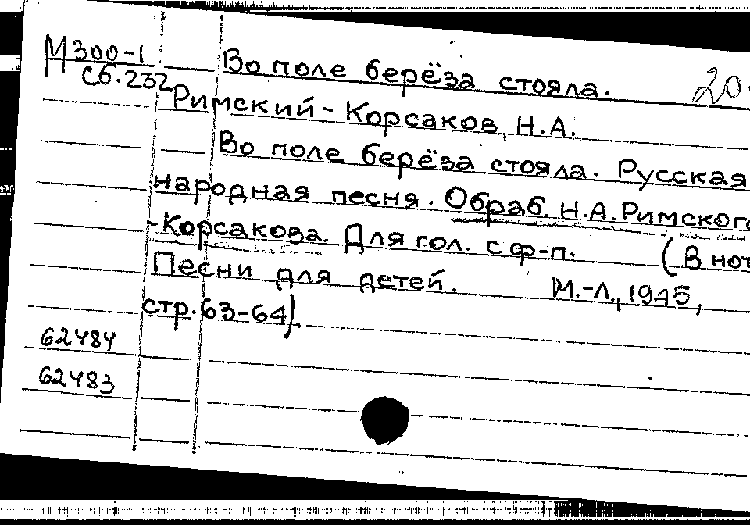 М300-1
Сб.232
Во поле берёза стояла. 20
Римский-Корсаков, Н.А.
Во поле берёза стояла. Русская
народная песня. Обраб. Н.А.Римского
-Корсакова. Для гол. с ф-п. (В нот
Песни для детей. М.-Л., 1945,
стр. 63-64).
62484
62483